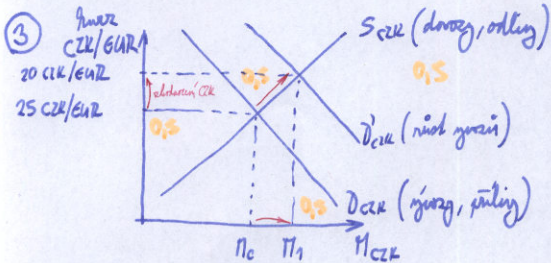 3
kurz
CZK/EUR
20 CZK/EUR
25 CZK/EUR
zhodnocení CZK
0,5
0,5
0,5
0,5
S CZK (dovozy, odlivy)
D'CZK (růst vývozů)
D CZK (vývozy, přílivy)
M0
M1
M CZK